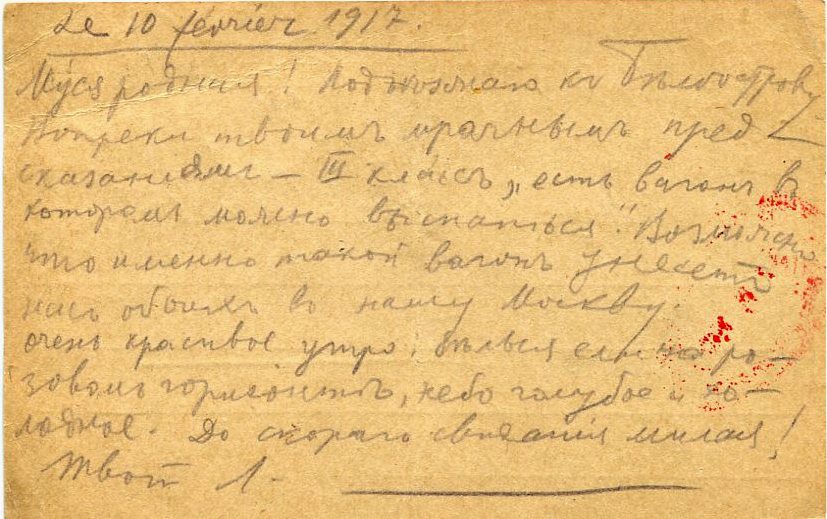 Le 10 février 1917.
Муся родная! Подъѣзжаю къ Бѣлоострову
Вопреки твоимъ мрачнымъ пред
сказаніямъ – III классъ, „есть вагонъ въ
которомъ можно выспаться". Возможно
что именно такой вагонъ унесетъ
насъ обоихъ въ нашу Москву.
очень красивое утро, бѣлыя ели на ро–
зовомъ горизонтѣ, небо голубое и хо–
лодное. До скораго свиданія милая!
Твой Л.